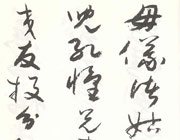 母儀諸姑
兒孔懷兄
交友投分